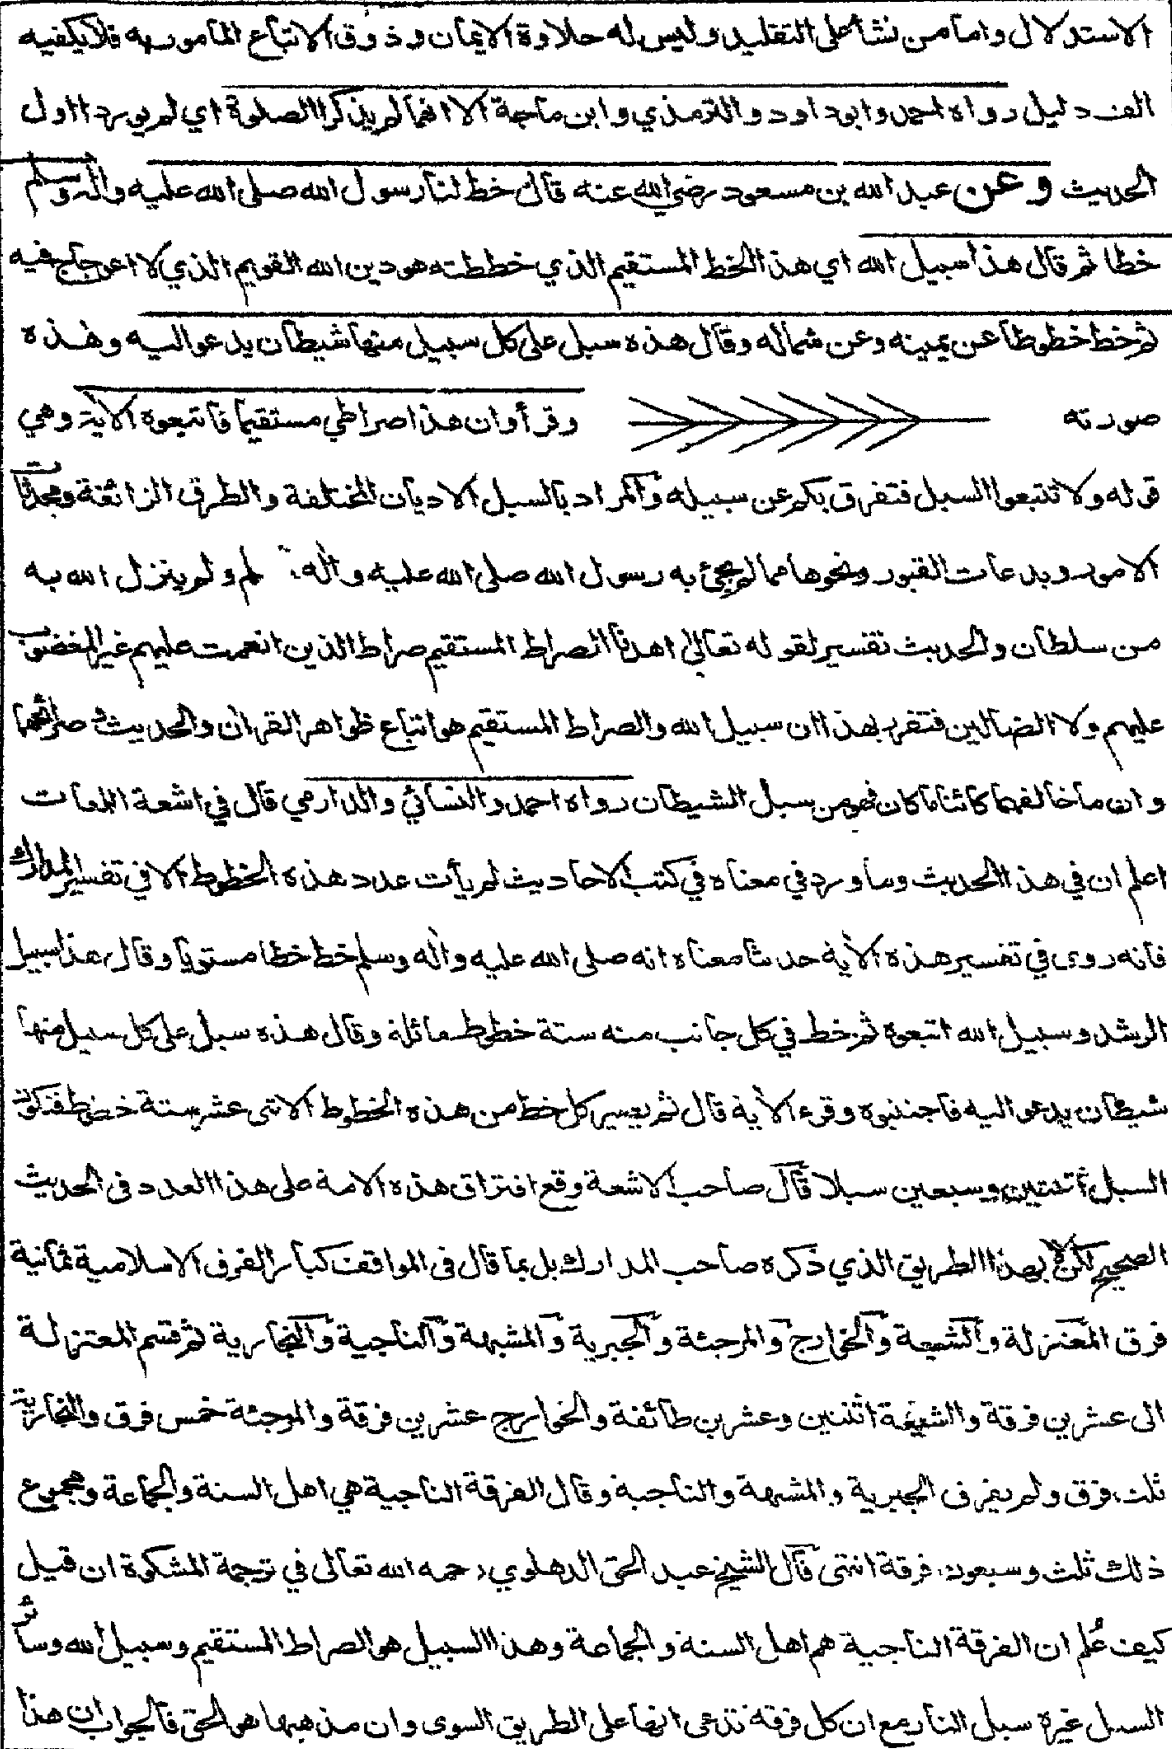 الاستدلال واما من نشأ على التقليد وليس له حلاوة الايمان وذوق الاتباع المأمور به فلا يكفيه
الف دليل رواه احمد وابوداود والترمذي وابن ماجة الا انهما لم يذكرا الصلوة اي لم يوردا اول
الحديث وعن عبد الله بن مسعود رضي الله عنه قال خط لنا رسول الله صلى الله عليه واله وسلم
خطا ثم قال هذا سبيل الله اي هذا الخط المستقيم الذي خططته هو دين الله القويم الذي لا اعوجاج فيه
ثم خط خطوطا عن يمينه وعن شماله وقال هذه سبل على كل سبيل منها شيطان يدعو اليه وهذه
صورته وقرأ وان هذا صراطي مستقيما فاتبعوه الأية وهي
قوله ولا تتبعوا السبل فتفرق بكم عن سبيله والمراد بالسبل الاديان المختلفة والطرق الزائغة ومحدثات
الامور وبدعات القبور ونحوها مما لم يجئ به رسول الله صلى الله عليه وأله لم ولم ينزل الله به
من سلطان والحديث تفسير لقوله تعالى اهدنا الصراط المستقيم صراط الذين انعمت عليهم غير المغضوب
عليهم ولا الضالين فتقرر بهذا ان سبيل الله والصراط المستقيم هو اتباع ظواهر القرأن والحديث وصرائحهما
وان ما خالفهما كائنا ما كان فهو من سبل الشيطان رواه احمد والنسائي والدارمي قال في اشعة اللمعات
اعلم ان في هذا الحديث وما ورد في معناه في كتب الاحاديث لم يأت عدد هذه الخطوط الا في تفسير المدارك
فانه روى في تفسير هذه الأية حديثا معناه انه صلى الله عليه وأله وسلم خط خطا مستويا وقال هذا سبيل
الرشد وسبيل الله اتبعوه ثم خط في كل جانب منه ستة خطوط مائلة وقال هذه سبل على كل سبيل منها
شيطان يدعو اليه فاجتنبوه وقرء الأية قال ثم يصير كل خط من هذه الخطوط الاثنى عشر ستة خطوط فتكون
السبل اثنتين وسبعين سبيلا قال صاحب الاشعة وقع افتراق هذه الامة على هذا العدد في الحديث
الصحيح لكن لا بهذا الطريق الذي ذكره صاحب المدارك بل بما قال في المواقف كبار الفرق الاسلامية ثمانية
فرق المعتزلة والشيعة والخوارج والمرجئة والجبرية والمشبهة والناجية والنجارية ثم قسم المعتزلة
الى عشرين فرقة والشيعة اثنين وعشرين طائفة والخوارج عشرين فرقة والمرجئة خمس فرق والنجارية
ثلث فرق ولم يفرق الجبرية والمشبهة والناجية وقال الفرقة الناجية هي اهل السنة والجماعة ومجموع
ذلك ثلث وسبعون فرقة انتهى قال الشيخ عبد الحق الدهلوي رحمه الله تعالى في ترجمة المشكوة ان قيل
كيف علم ان الفرقة الناجية هم اهل السنة والجماعة وهذا السبيل هو الصراط المستقيم وسبيل الله وسائر
السبل غيره سبل النار مع ان كل فرقة تدعى انها على الطريق السوى وان مذهبها هو الحق فالجواب ان هذا